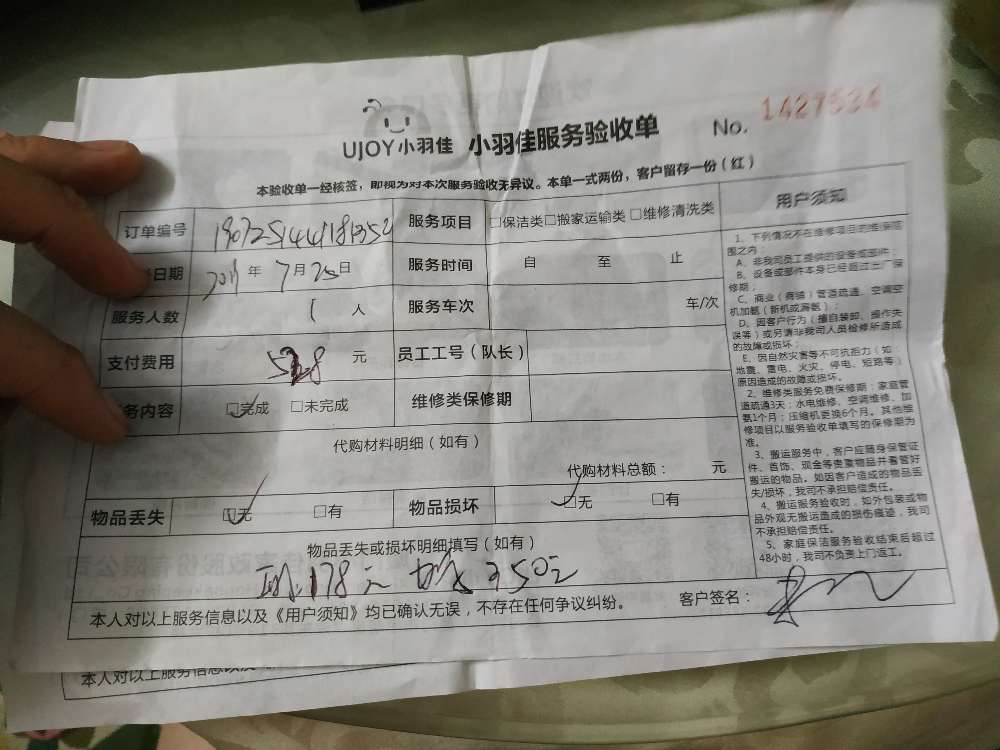 UJOY小羽佳 小羽佳服务验收单 No. 1427534
本验收单一经核签，即视为对本次服务验收无异议。本单一式两份，客户留存一份（红）
订单编号
服务项目 □保洁类□搬家运输类□维修清洗类
日期 年 7月 日
服务时间 自 至 止
服务人数 1 人
服务车次 车/次
支付费用 528 元
员工工号（队长）
务内容 □完成 □未完成
维修类保修期
代购材料明细（如有）
代购材料总额： 元
物品丢失 □无 □有
物品损坏 □无 □有
物品丢失或损坏明细填写（如有）
178元 350元
本人对以上服务信息以及《用户须知》均已确认无误，不存在任何争议纠纷。 客户签名：
用户须知
1、下列情况不在维修项目的维保范
围之内：
A、非我司员工提供的设备或部件；
B、设备或部件本身已经超过出厂保
修期；
C、商业（商铺）管道疏通、空调空
机加氨（新机或漏氨）；
D、因客户行为（擅自装卸、操作失
误等）或另请非我司人员检修所造成
的故障或损坏；
E、因自然灾害等不可抗拒力（如：
地震、雷电、火灾、停电、短路等）
原因造成的故障或损坏。
2、维修类服务免费保修期：家庭管
道疏通3天；水电维修、空调维修、加
氨1个月；压缩机更换6个月。其他维
修项目以服务验收单填写的保修期为
准。
3、搬运服务中，客户应随身保管证
件、首饰、现金等贵重物品并看管好
搬运的物品。如因客户造成的物品丢
失/损坏，我司不承担赔偿责任。
4、搬运服务验收时，如外包装或物
品外观无搬运造成的损伤痕迹，我司
不承担赔偿责任。
5、家庭保洁服务验收结束后超过
48小时，我司不负责上门返工。
本人对以上服务信息以及